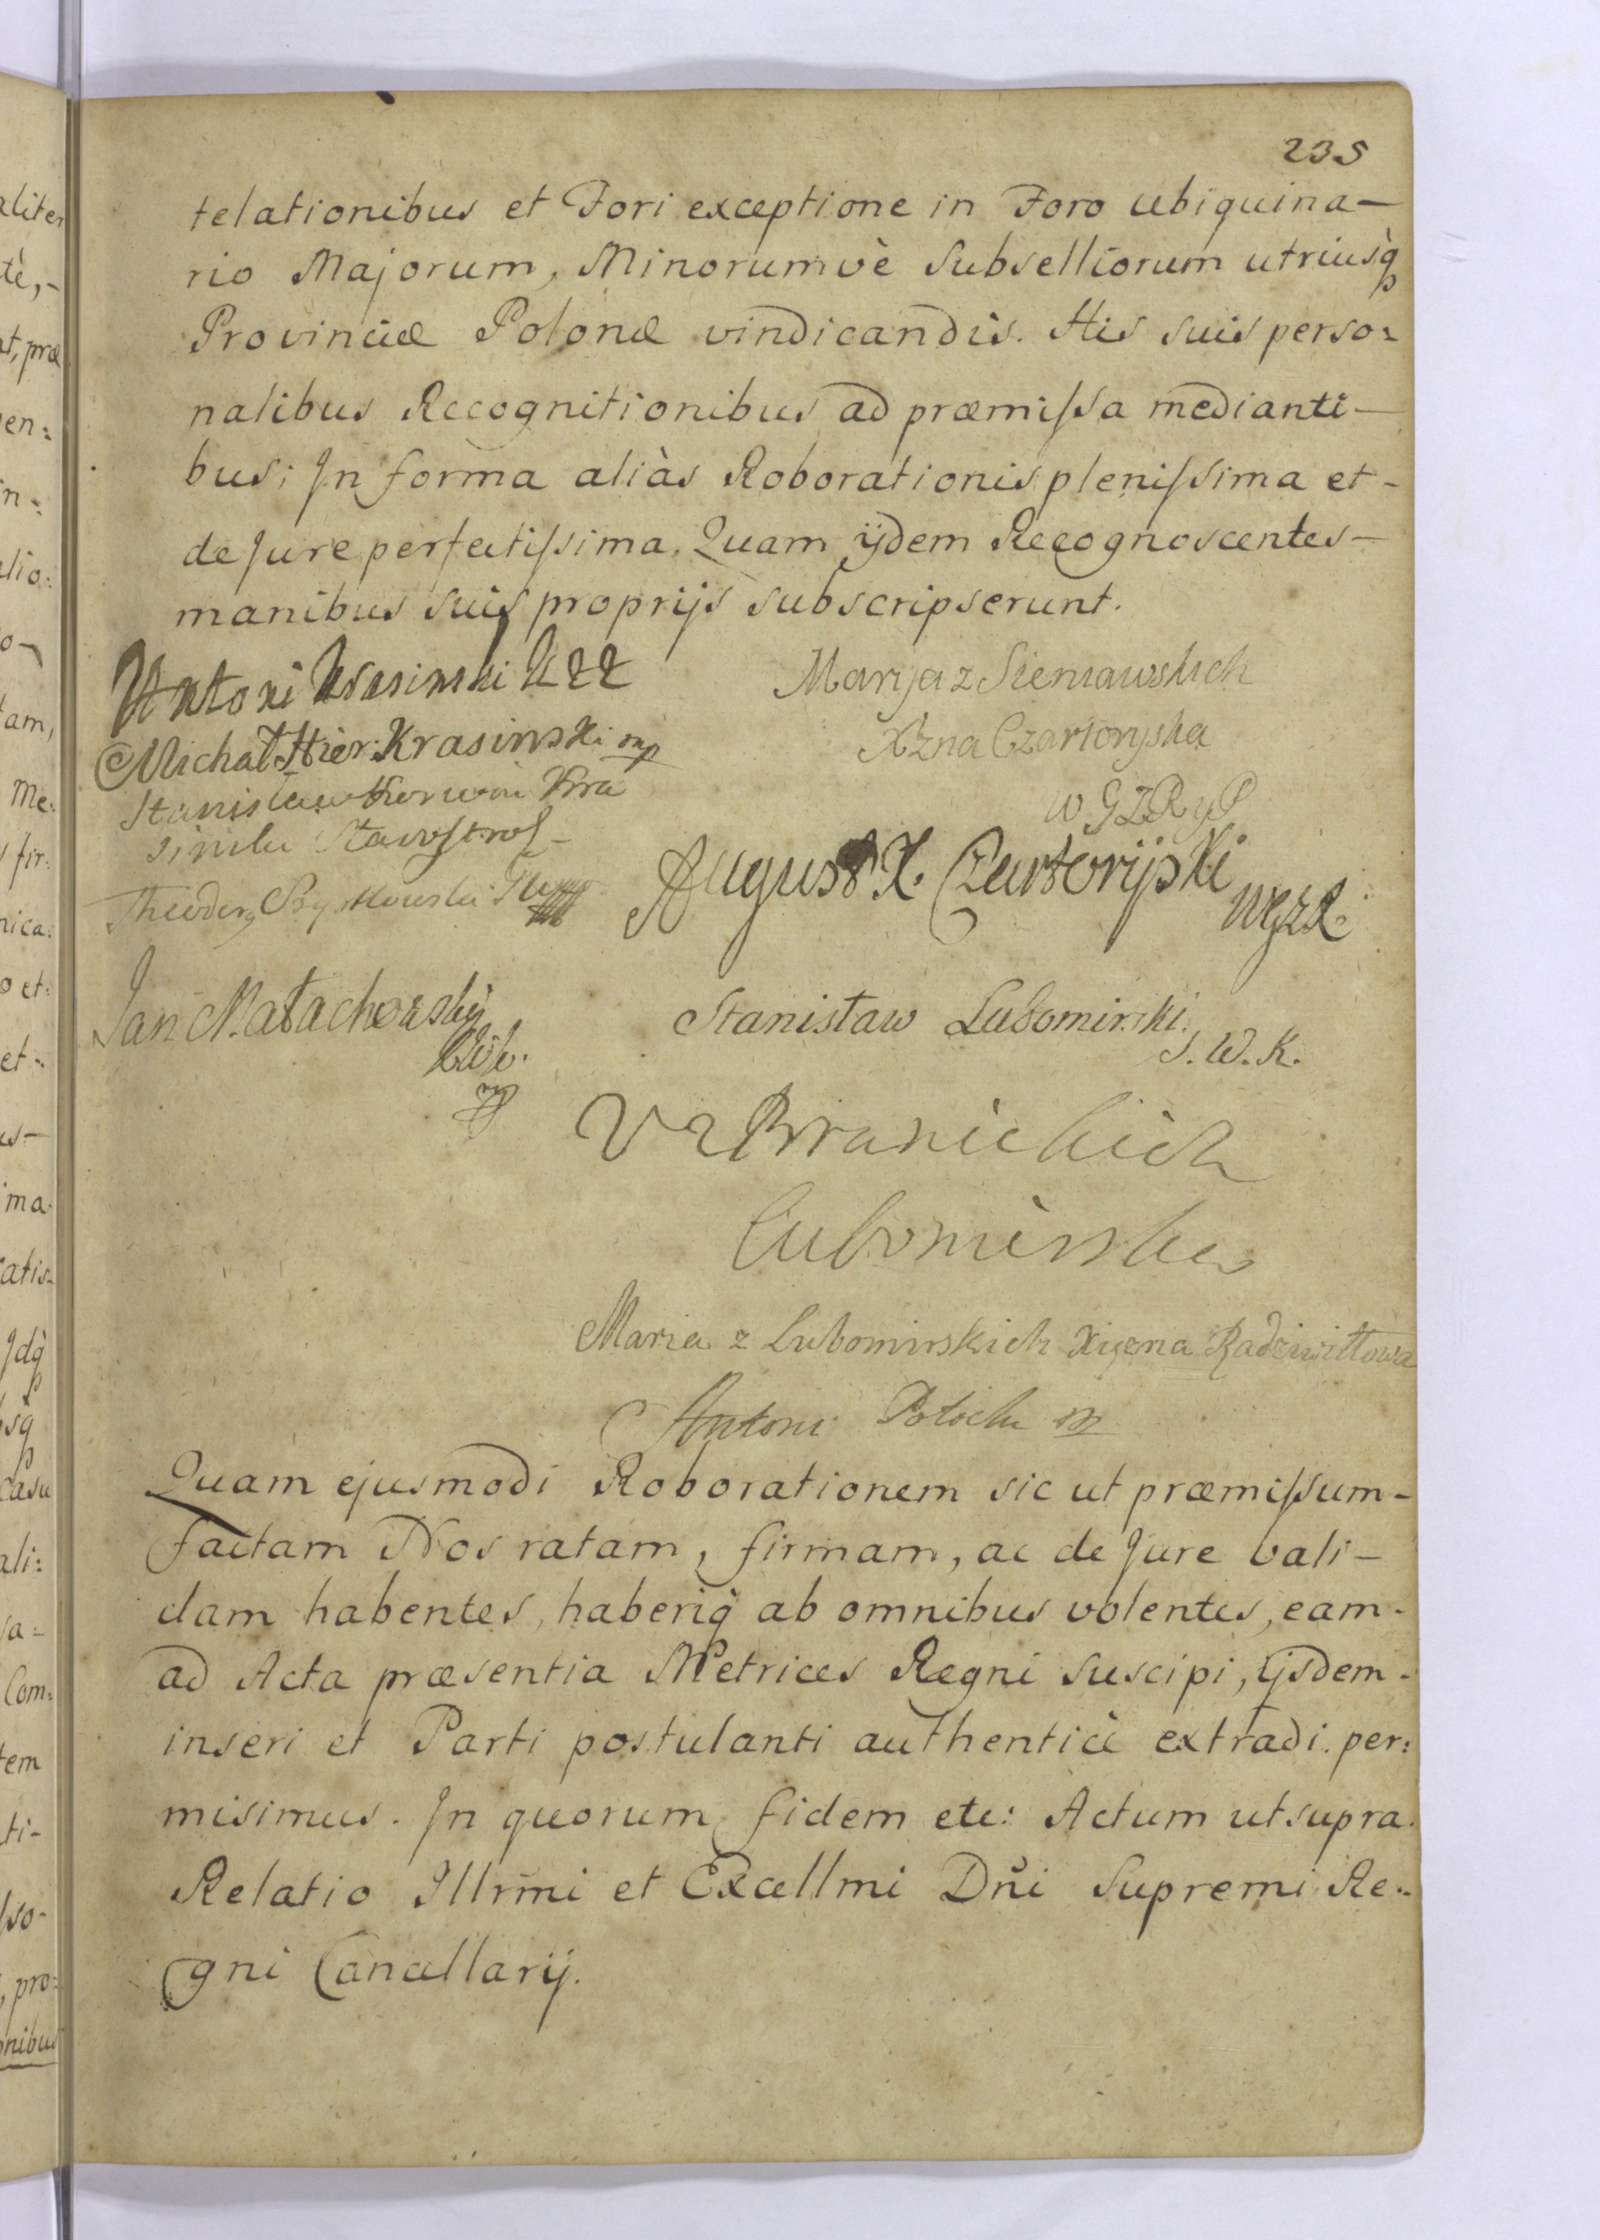 235
telationibus et Fori exceptione in Foro ubiquina—
rio Majorum, Minorumvè Subselliorum utriusq̀
Provinciæ Polonæ vindicandis. His suis perso:
nalibus Recognitionibus ad præmiſsa medianti—
bus; Jn forma aliàs Roborationis pleniſsima et-
de Jure perfectiſsima. Quam ijdem Recognoscentes—
manibus suis proprijs subscripserunt.
Antoni Krasinski
Michał Hier: Krasinski mp
Stanisław Korwin Kra
sinski
Theodor
Jan Małachowski
mp
Maryja z Sieniawskich
Xżna Czartoryska
w G Z R y P
August X. Czartoryski
WGZR.
Stanisław Lubomirski.
S. W. K.
z Branickich
Lubomirska
Maria z Lubomirskich Xięzna Radziwiłłowa
Antoni Potocki
Quam ejusmodi Roborationem sic ut præmiſsum-
factam Nos ratam, firmam, ac de Jure vali—
dam habentes, haberiq̀ ab omnibus volentes, eam-
ad Acta præsentia Metrices Regni suscipi, ijsdem-
inseri et Parti postulanti authenticè extradi per:
misimus. Jn quorum fidem etc: Actum ut supra.
Relatio Jllrmi et Excellmi Dñi Supremi Re:
gni Cancellarij.